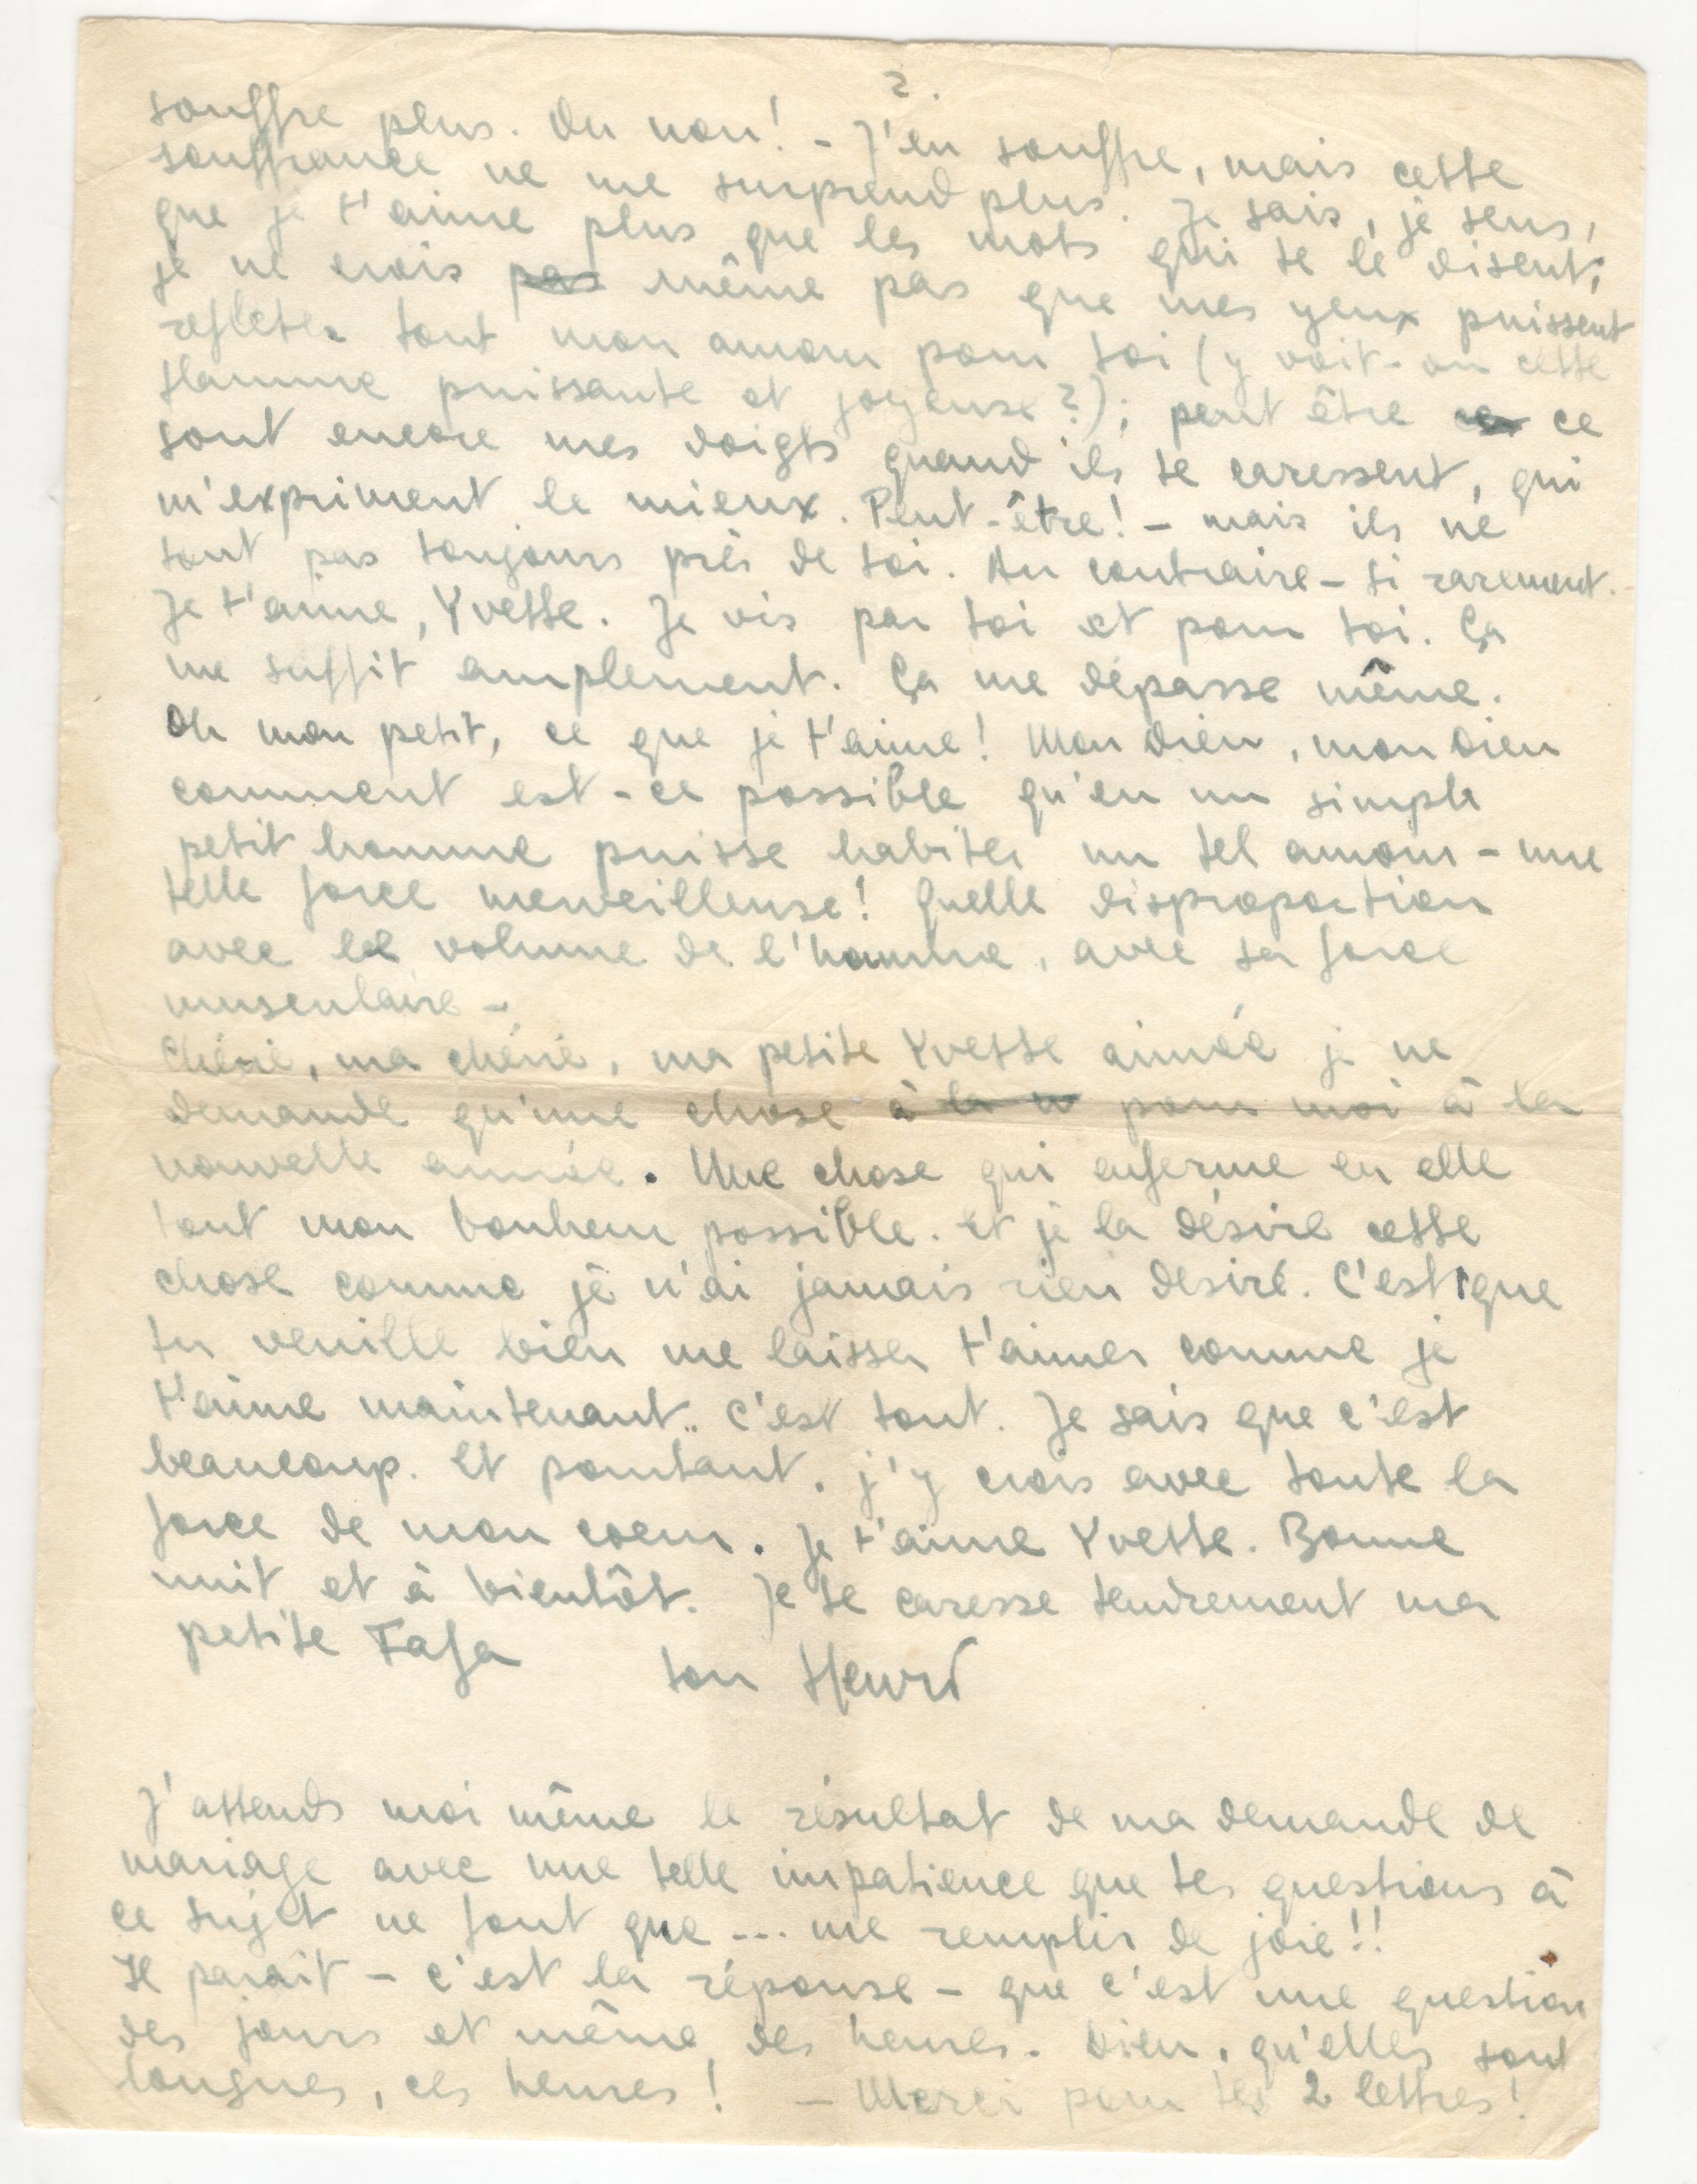 2.
souffre plus. Oh non! - J'en souffre, mais cette
souffrance ne me surprend plus. Je sais, je sens,
que je t'aime plus que les mots qui te le disent;
je ne crois pas même pas que mes yeux puissent
refleter tout mon amour pour toi (y voit-on cette
flamme puissante et joyeuse?); peut être ce
sont encore mes doigts quand ils te caressent, qui
m'expriment le mieux. Peut-être! - mais ils ne
sont pas toujours près de toi. Au contraire - si rarement.
Je t'aime, Yvette. Je vis par toi et pour toi. Ça
me suffit amplement. Ça me dépasse même.
Oh mon petit, ce que je t'aime! Mon Dieu, mon Dieu
comment est-ce possible qu'en un simple
petit homme puisse habiter un tel amour - une
telle force merveilleuse! Quelle disproportion
avec le volume de l'homme, avec sa force
musculaire -
Chérie, ma chérie, ma petite Yvette aimée je ne
demande qu'une chose à la n pour moi à la
nouvelle année. Une chose qui enferme en elle
tout mon bonheur possible. Et je la désire cette
chose comme je n'ai jamais rien désiré. C'est que
tu veuille bien me laisser t'aimer comme je
t'aime maintenant.. C'est tout. Je sais que c'est
beaucoup. Et pourtant. j'y crois avec toute la
force de mon coeur. Je t'aime Yvette. Bonne
nuit et à bientôt. Je te caresse tendrement ma
petite Fafa
ton Henri
J'attends moi même le résultat de ma demande de
mariage avec une telle impatience que tes questions à
ce sujet ne font que ... me remplir de joie!!
Il parait - c'est la réponse - que c'est une question
des jours et même des heures. Dieu, qu'elles sont
longues, ces heures! - Merci pour tes 2 lettres!